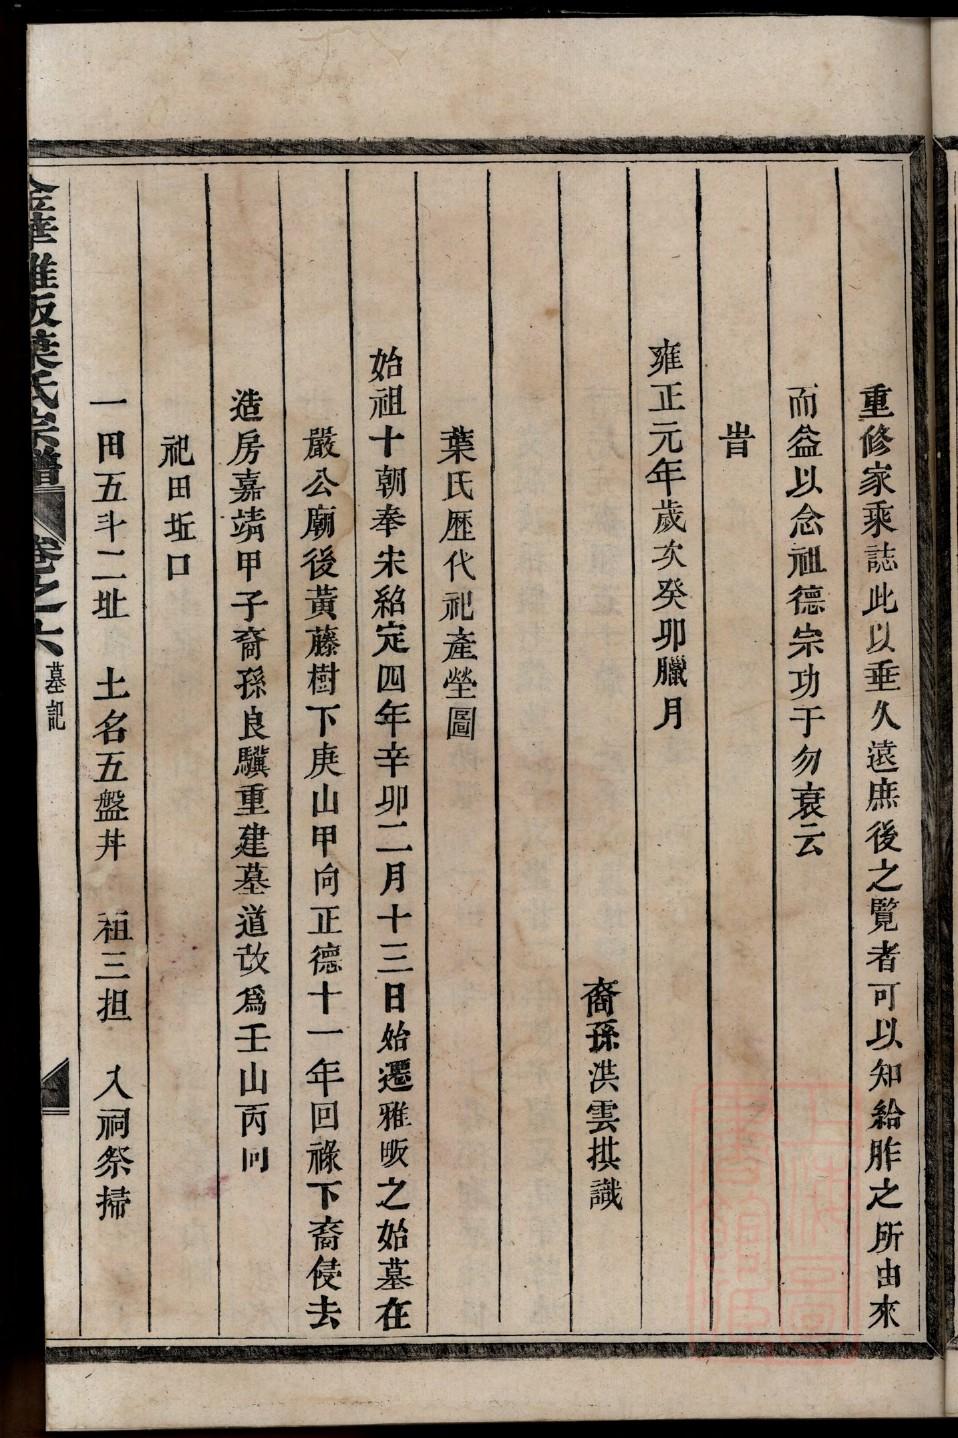 重修家乘誌此以垂久遠庶後之覧者可以知給胙之所由來
而益以念祖德宗功于勿衰云
旹
雍正元年歲次癸卯臘月
裔孫洪雲拱識
葉氏歷代祀產塋圖
始祖十朝奉宋紹定四年辛卯二月十三日始遷雅畈之始墓在
嚴公廟後黃藤樹下庚山甲向正德十一年回祿下裔侵去
造房嘉靖甲子裔孫良驥重建墓道改爲壬山丙向
祀田坵口
一田五斗二址　土名五盤丼　租三担　入祠祭掃
金華雅畈葉氏宗譜　卷之六　墓記　一